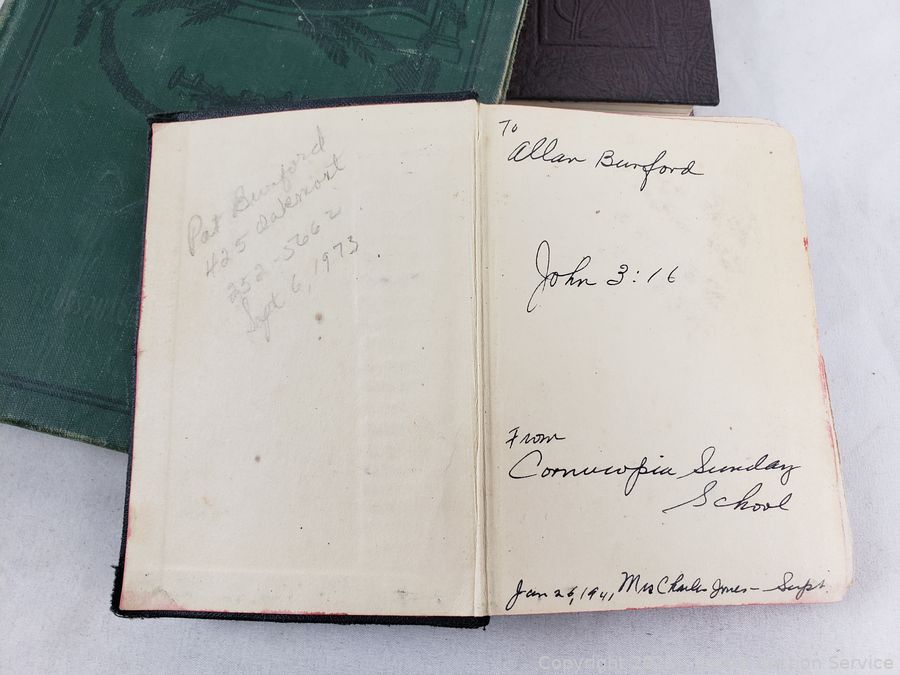 Pat Burford
425 Oakmont
232-5662
Sept 6, 1973
To
Allan Burford
John 3:16
From
Cornucopia Sunday
School
Jan 26, 1941, Mrs Charles Jones - Supt.
Copyright Auction Service